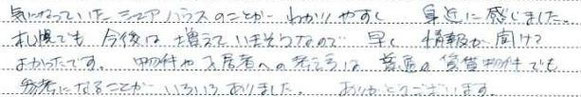 気になっていたシェアハウスのことが わかりやすく 身近に感じました。
札幌でも 今後は 増えていきそうなので 早く 情報が聞けて
よかったです。 物件や入居者への考え方は 普通の賃貸物件でも
参考になることが いろいろありました。 ありがとうございます。